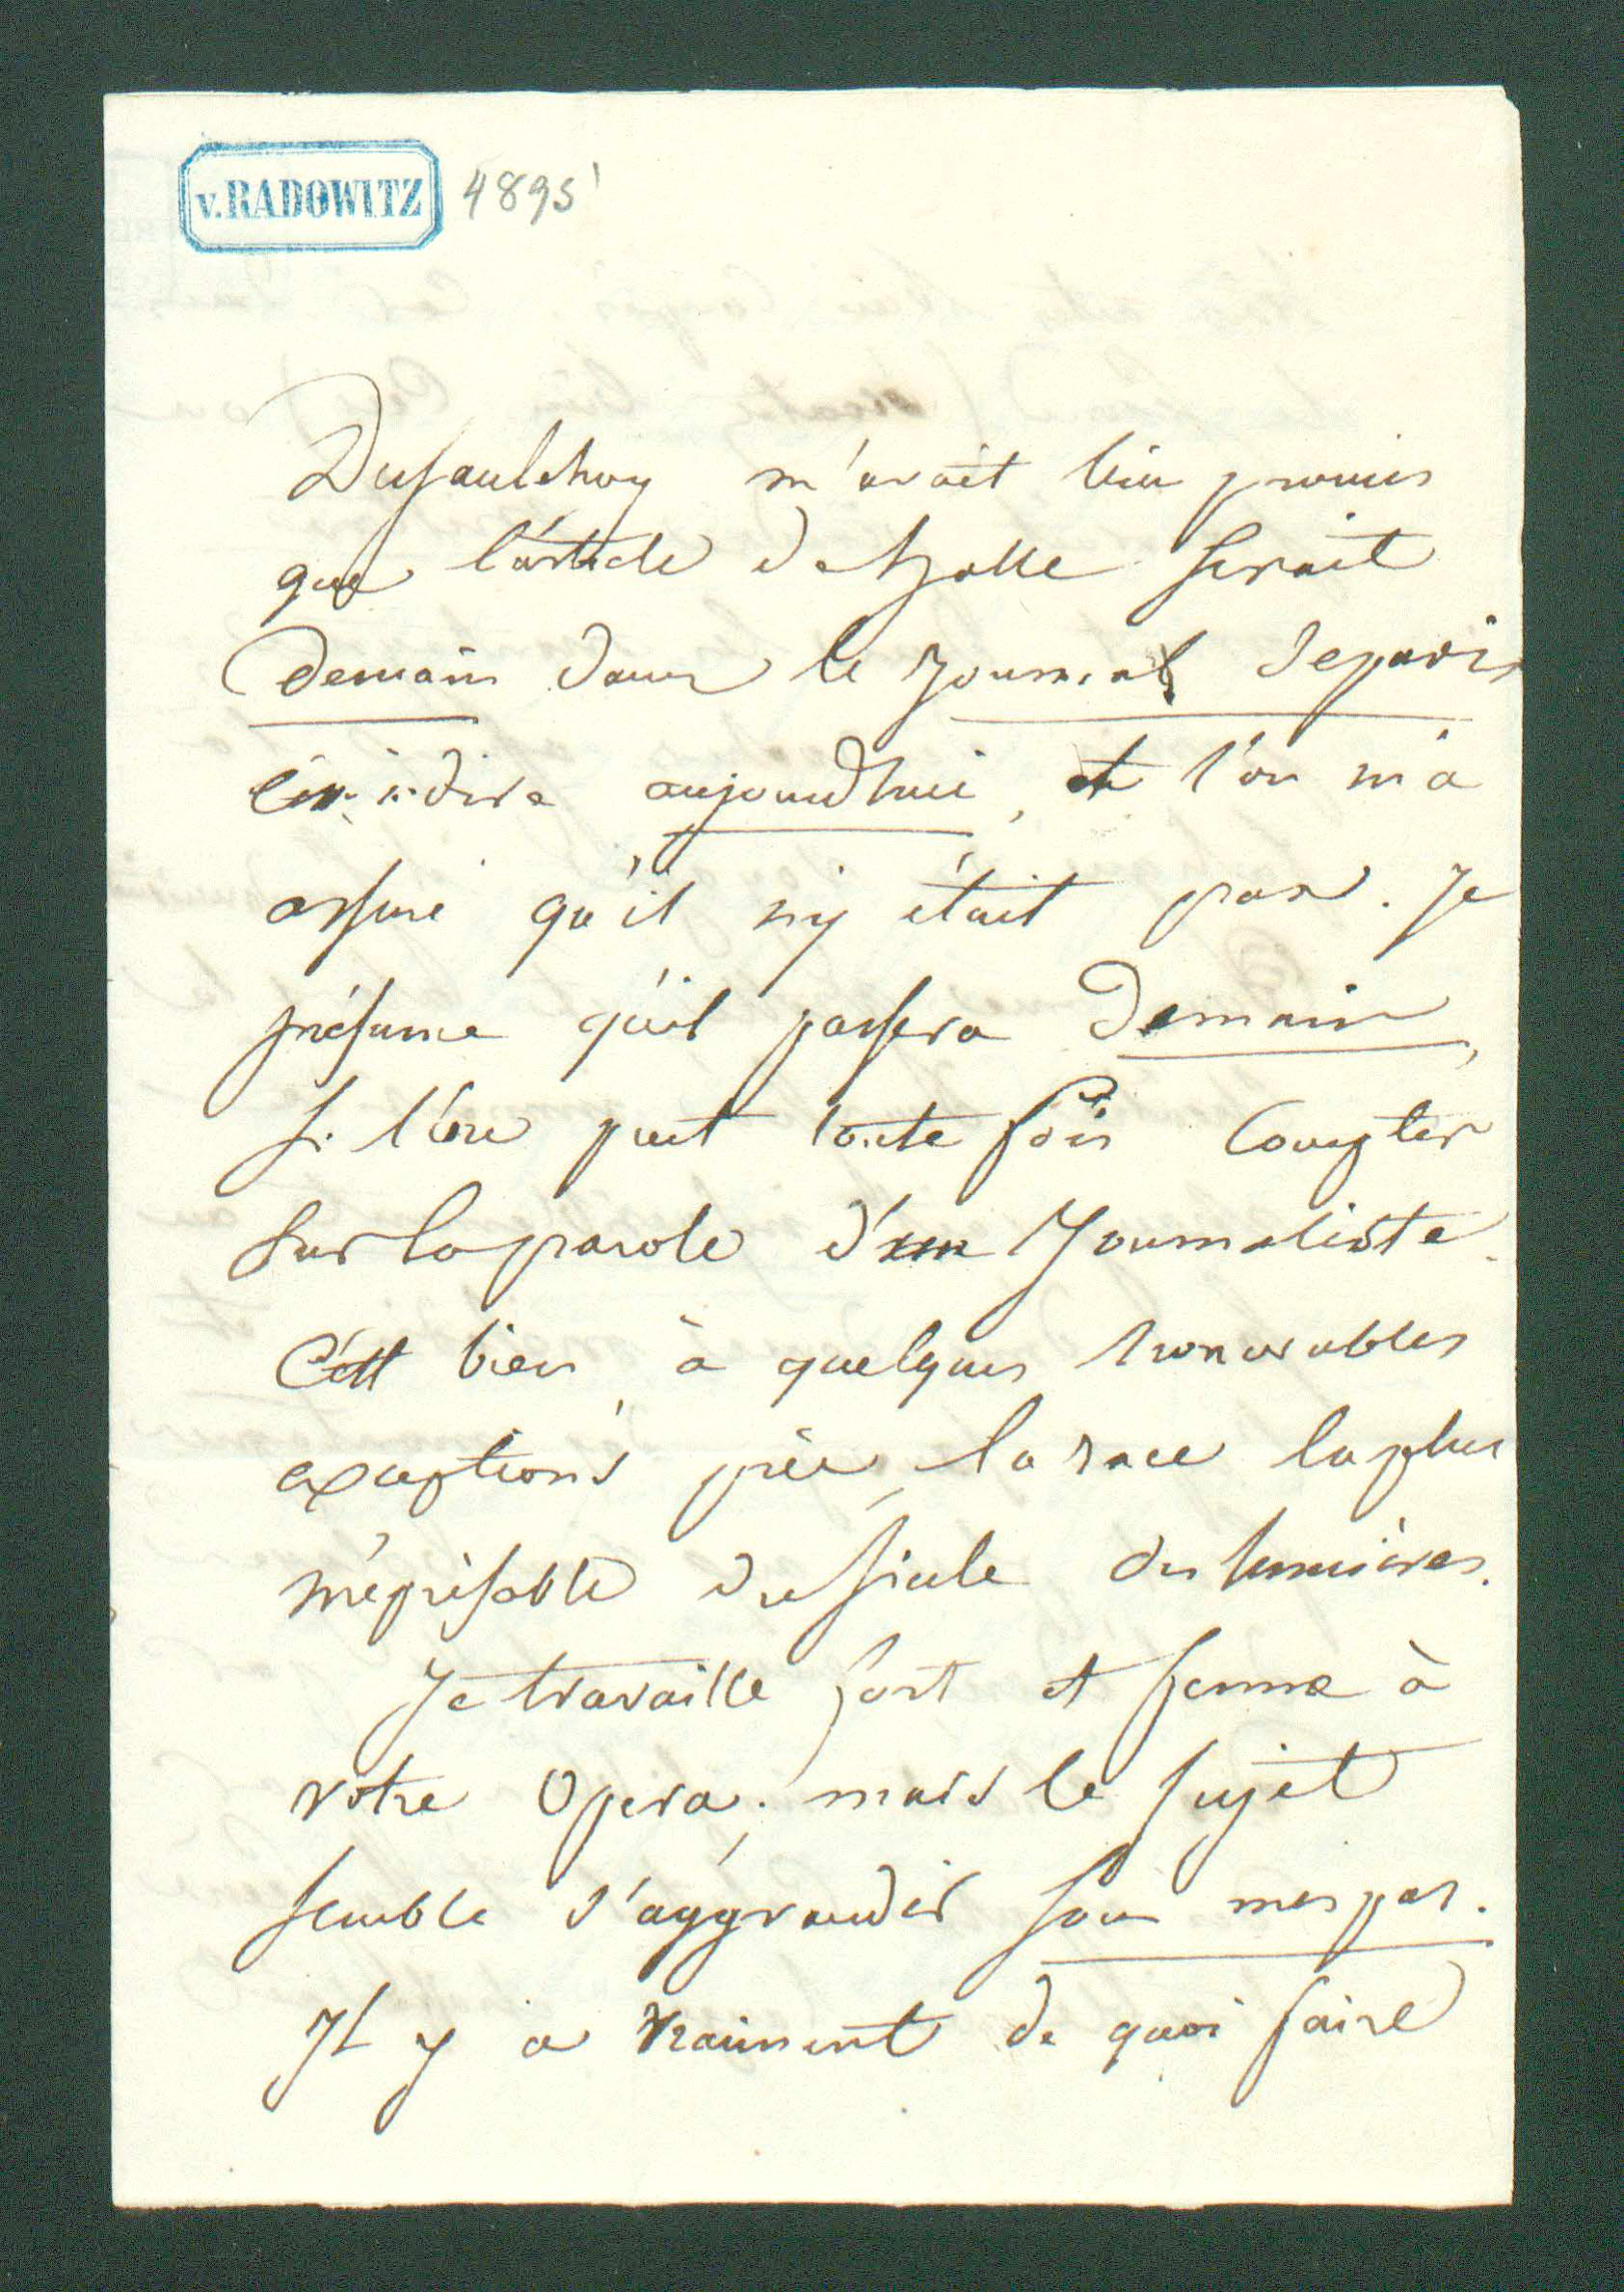 v. RADOWITZ 4895
Dusaulchoy m'avait bien promis
que l'article de halle serait
demain dans le Journal de paris
c'est à dire aujourd'hui, et l'on m'a
assuré qu'il n'y était pas. Je
présume qu'il passera demain,
si l'on peut toute fois compter
sur la parole d'un Journaliste.
C'est bien, à quelques honorables
exceptions près, la race la plus
méprisable du siecle des lumières.
Je travaille fort et ferme à
votre Opera; mais le sujet
semble s'aggrandir sous mes pas.
Il y a vraiment de quoi faire